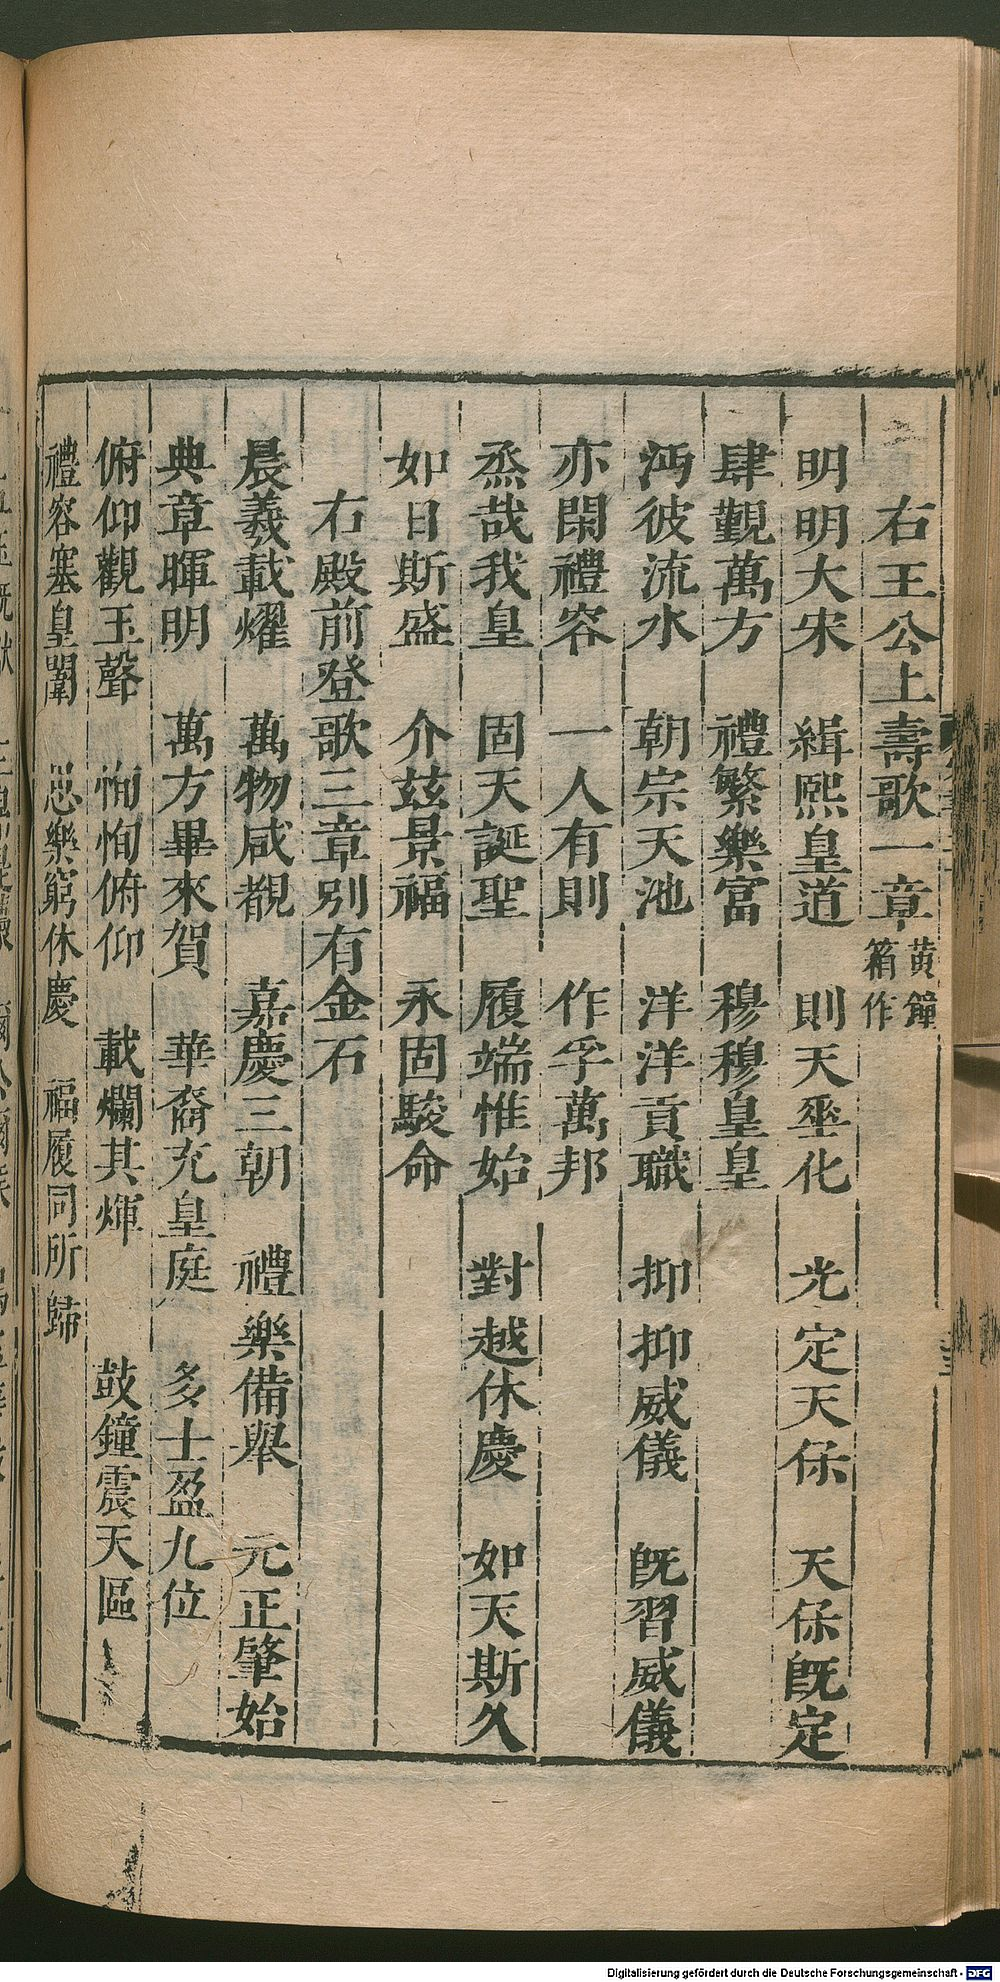 右王公上壽歌一章黃鐘箱作
明明大宋　緝熙皇道　則天垩化　光定天保　天保既定
肆觀萬方　禮繁樂富　穆穆皇皇
沔彼流水　朝宗天池　洋洋貢職　抑抑威儀　既習威儀
亦閑禮容　一人有則　作孚萬邦
烝哉我皇　固天誕聖　履端惟始　對越休慶　如天斯久
如日斯盛　介茲景福　永固駿命
右殿前登歌三章別有金石
晨羲載燿　萬物咸覩　嘉慶三朝　禮樂備舉　元正肇始
典章暉明　萬方畢來賀　華裔充皇庭　多士盈九位
俯仰觀玉聲　恂恂俯仰　載爛其煇　鼓鐘震天區
禮容塞皇闈　思樂窮休慶　福履同所歸
Digitalisierung gefördert durch die Deutsche Forschungsgemeinschaft - DFG